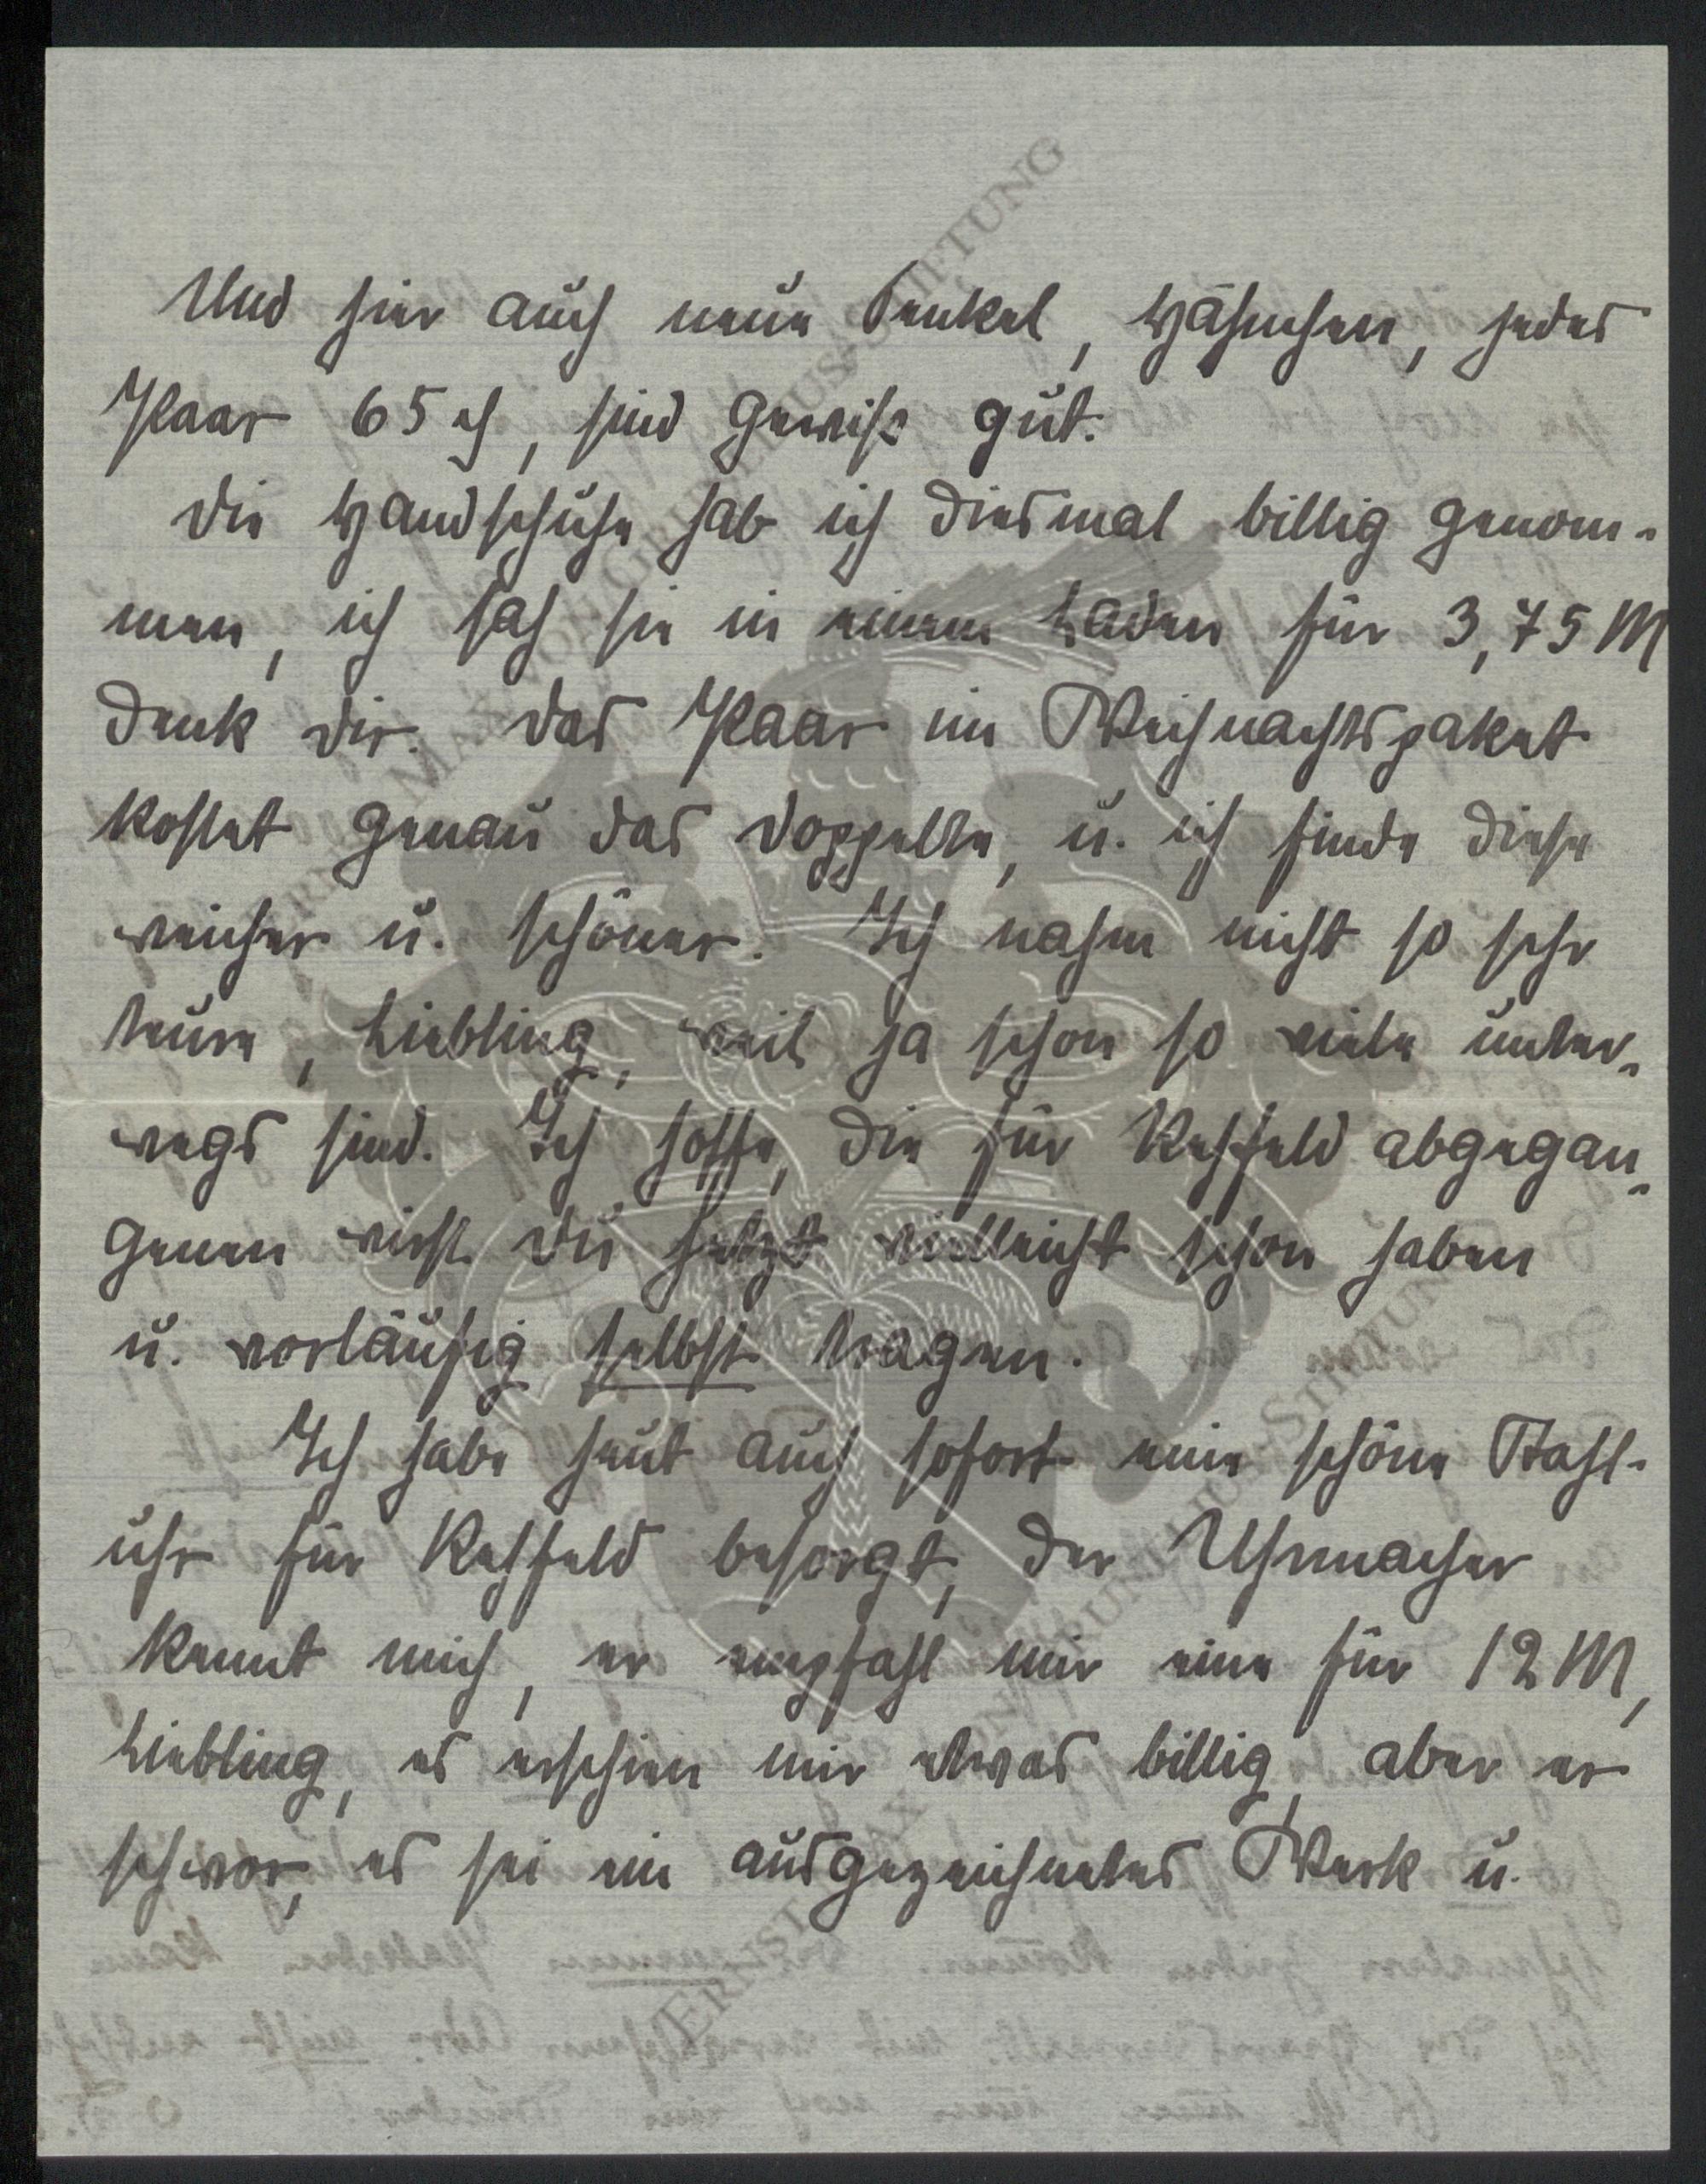 Und hier auch neue Senkel, Hähnchen, jedes
Paar 65 ₰, sind gewiss gut.
Die Handschuhe hab ich diesmal billig genom-
men, ich sah sie in einem Laden für 3,75 M
denk Dir. Das Paar im Weihnachtspaket
kostet genau das Doppelte, u. ich finde diese
weicher u. schöner. Ich nahm nicht so sehr
teure, Liebling, weil ja schon so viele unter-
wegs sind. Ich hoffe, die für Rehfeld abgegan-
genen wirst Du jetzt vielleicht schon haben
u. vorläufig selbst tragen.
Ich habe heut auch sofort eine schöne Stahl-
uhr für Rehfeld besorgt, der Uhrmacher
kennt mich, er empfahl mir eine für 12 M,
Liebling, es erschien mir etwas billig aber er
schwor, es sei ein ausgezeichnetes Werk u.
ERNST MAX VON GRUNELIUS-STIFTUNG
ERNST MAX VON GRUNELIUS-STIFTUNG